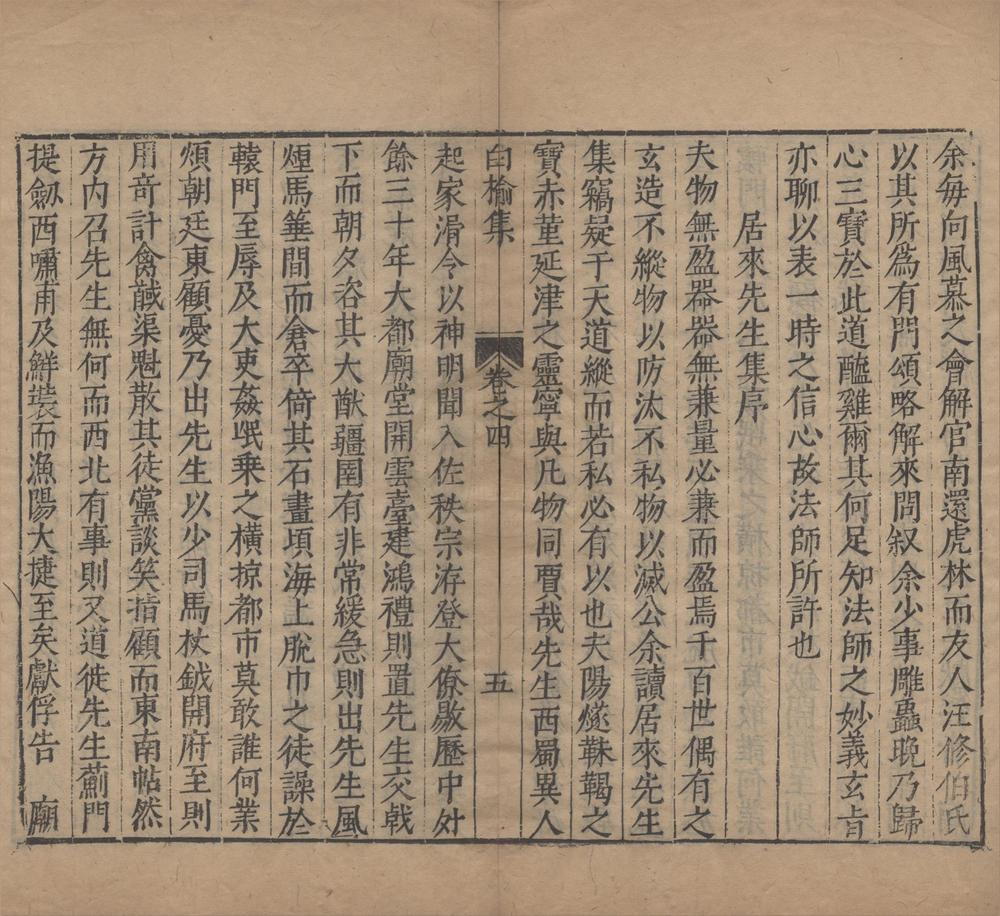 余每向風慕之會解官南還虎林而友人汪修伯氏
以其所為有門頌略解來問叙余少事雕蟲晚乃歸
心三寶於此道醯雞爾其何足知法師之妙義玄㫖
亦聊以表一時之信心故法師所許也
居來先生集序
夫物無盈器器無兼量必兼而盈焉千百世偶有之
玄造不縱物以防汰不私物以滅公余讀居來先生
集竊疑于天道縱而若私必有以也夫陽燧靺鞨之
寶赤堇延津之靈寧與凡物同賈哉先生西蜀異人
白榆集
卷之四
五
起家滑令以神明聞入佐秩宗洊登大僚敭歷中外
餘三十年大都廟堂開雲臺建鴻禮則置先生交戟
下而朝夕咨其大猷疆圉有非常緩急則出先生風
煙馬箠間而倉卒倚其石畫頃海上脫巾之徒譟於
轅門至辱及大吏姦氓乘之橫掠都市莫敢誰何業
煩朝廷東顧憂乃出先生以少司馬杖鉞開府至則
用竒計禽馘渠魁散其徒黨談笑指顧而東南帖然
方內召先生無何而西北有事則又道徙先生薊門
提劔西嘯甫及鮮裝而漁陽大捷至矣獻俘告　廟